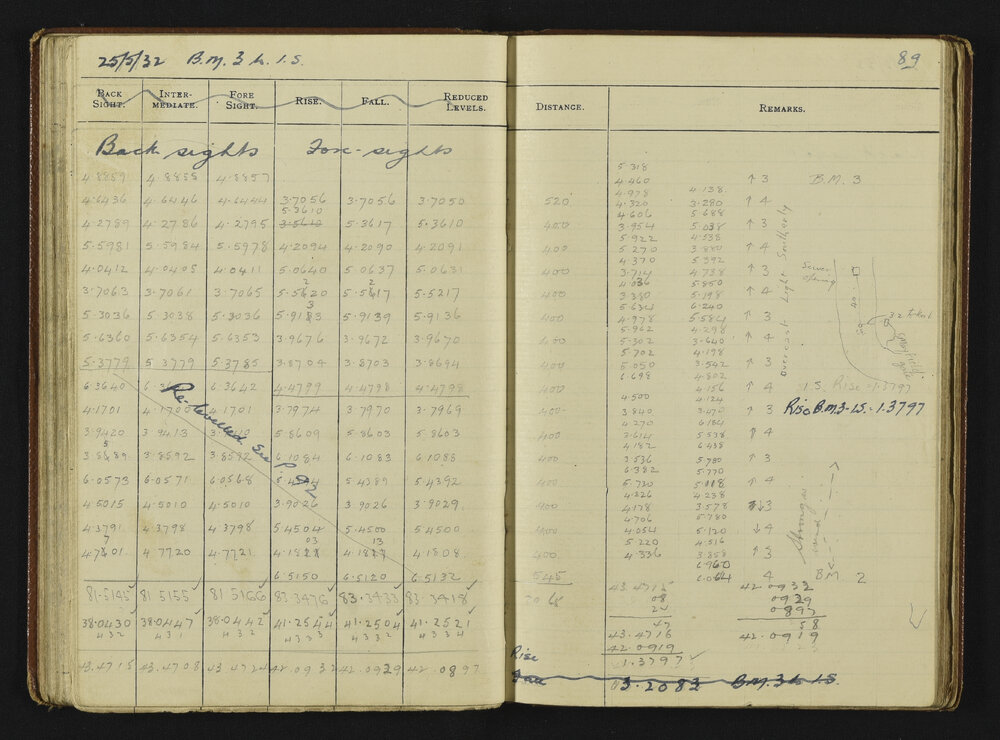 25/5/32 B.M. 3 to I.S.
BACK SIGHT. INTER-MEDIATE. FORE SIGHT. RISE. FALL. REDUCED LEVELS.
Back sights Fore-sights
4.8859 4.8858 4.8857
4.6436 4.6446 4.6444 3.7056 3.7056 3.7050
5.3610
4.2789 4.2786 4.2795 3.5610 5.3617 5.3610
5.5981 5.5984 5.5978 4.2094 4.2090 4.2091
4.0412 4.0405 4.0411 5.0640 5.0637 5.0631
3.7063 3.7061 3.7065 5.5620 5.5617 5.5217
5.3036 5.3038 5.3036 5.9183 5.9139 5.9136
5.6360 5.6354 5.6353 3.9676 3.9672 3.9670
5.3779 5.3779 5.3785 3.8704 3.8703 3.8694
6.3640 6.3642 4.4799 4.4798 4.4798
4.1701 4.1700 4.1701 3.7974 3.7970 3.7969
3.9420 3.9413 5.8609 5.8603 5.8603
3.8592 3.8592 6.1084 6.1083 6.1088
6.0573 6.0571 6.0568 5.4389 5.4392
4.5015 4.5010 4.5010 3.9026 3.9026 3.9029
4.3791 4.3798 4.3798 5.4504 5.4500 5.4500
03 13
4.7720 4.7721 4.1808
6.5150 6.5120 6.5132
Re-levelled. See P 92
81.5145 81.5155 81.5166 83.3476 83.3433 83.3418
38.0430 38.0447 38.0442 41.2544 41.2504 41.2521
432 431 432 4333 4332 4334
43.4715 43.4708 43.4724 42.0932 42.0929 42.0897
89
DISTANCE. REMARKS.
5.318
4.460 ↑ 3 B.M. 3
4.978 4.138
520 4.320 3.280 ↑ 4
4.606 5.688
400 3.954 5.038 ↑ 3
5.922 4.538
400 5.270 3.880 ↑ 4
4.370 5.392
400 3.714 4.738 ↑ 3
4.036 5.850
400 3.380 5.198 ↑ 4
5.634 6.240
400 4.978 5.584 ↑ 3
5.962 4.298
400 5.302 3.640 ↑ 4
5.702 4.198
400 5.050 3.542 ↑ 3
6.698 4.802
400 4.156 ↑ 4
4.500 4.124
400 3.840 3.470 ↑ 3
4.270 6.184
400 3.614 5.538 ↑ 4
4.182 6.438
400 3.536 5.780 ↑ 3
6.382 5.770
400 5.720 5.018 ↑ 4
4.826 4.238
400 4.178 3.578 ↓ 3
4.706 5.780
400 4.054 5.120 ↓ 4
5.220 4.516
400 4.336 3.858 ↑ 3
6.960
545 6.064 4 B.M. 2
Overcast Light Southerly
Strong wind
40
I.S. Rise 1.3797
Rise B.M.3-I.S. 1.3797
43.4715 42.0932
08 0929
24 0897
47 58
43.4716 42.0919
42.0919
Rise 1.3797
3.2083 B.M. 3 to I.S.